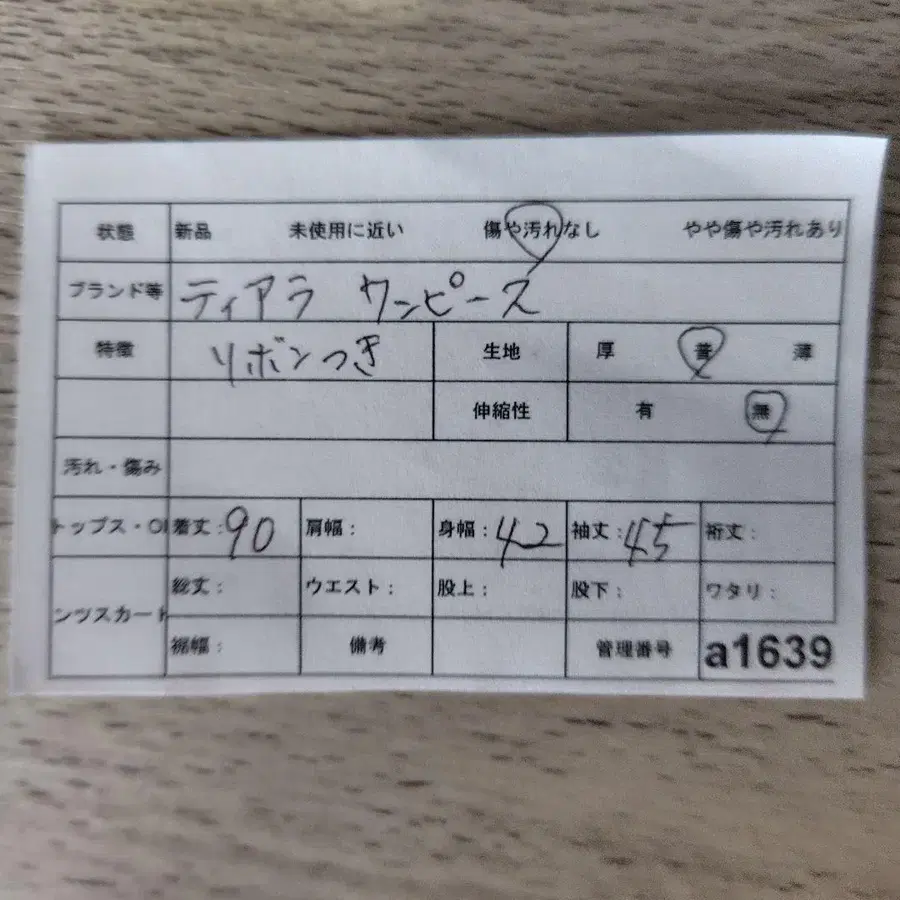 状態 新品 未使用に近い 傷や汚れなし やや傷や汚れあり
ブランド等 ティアラ ワンピース
特徴 リボンつき 生地 厚 普 薄
伸縮性 有 無
汚れ・傷み
トップス・O 着丈:90 肩幅: 身幅:42 袖丈:45 裄丈:
総丈: ウエスト: 股上: 股下: ワタリ:
ンツスカート
裾幅: 備考 管理番号 a1639